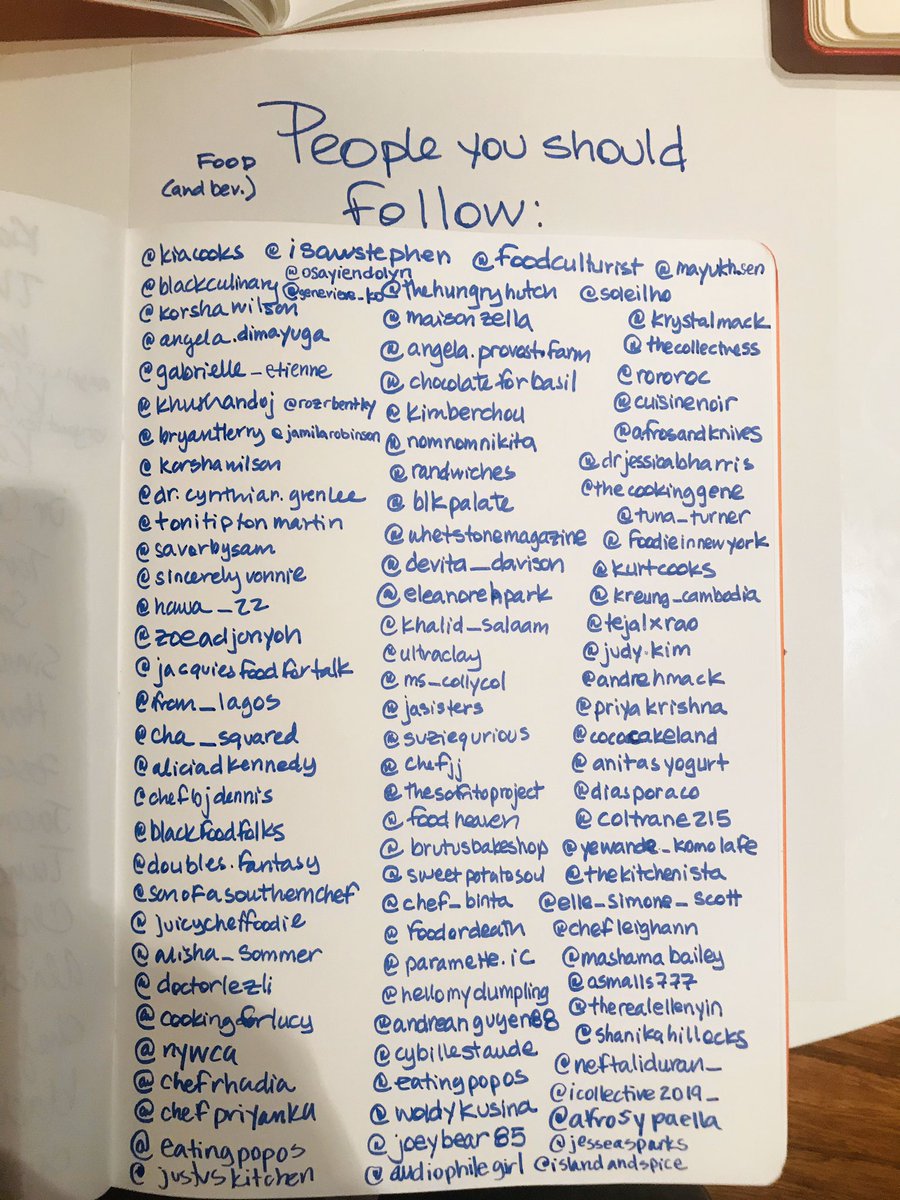 People you should
Food
(and bev.)
follow:
@kiacooks @isawstephen @foodculturist @mayukh.sen
@osayiendolyn
@blackculinary @genevieve_ko @thehungryhutch @soleilho
@korshawilson
@angela.dimayuga
@gabrielle_etienne
@khushandoj @rozrbentley
@bryantterry @jamilarobinson
@korshawilson
@dr.cynthian.grenlee
@tonitiptonmartin
@savorbysam
@sincerelyvonnie
@hawa_22
@zoeadjonyoh
@jacquiesfoodfortalk
@from_lagos
@cha_squared
@aliciadkennedy
@chefbjdennis
@blackfoodfolks
@doubles.fantasy
@sonofasouthernchef
@juicycheffoodie
@alisha_sommer
@doctorlezli
@cookingforlucy
@nywca
@chefrhadia
@chefpriyanka
@eatingpopos
@justuskitchen
@maisonzella
@angela.provostfarm
@chocolateforbasil
@kimberchou
@nomnomnikita
@randwiches
@blkpalate
@whetstonemagazine
@devita_davison
@eleanorehpark
@khalid_salaam
@ultraclay
@ms_collycol
@jasisters
@suziequrious
@chefjj
@thesofritoproject
@foodheaven
@brutusbakeshop
@sweetpotatosoul
@chef_binta
@foodordeath
@paramette.ic
@hellomydumpling
@andreanguyen88
@cybillestaude
@eatingpopos
@woldykusina
@joeybear85
@audiophilegirl
@krystalmack
@thecollectress
@rororoc
@cuisinenoir
@afrosandknives
@drjessicabharris
@thecookinggene
@tuna_turner
@foodieinnewyork
@kurtcooks
@kreung_cambodia
@tejalxrao
@judy.kim
@andrehmack
@priyakrishna
@cococakeland
@anitasyogurt
@diasporaco
@coltrane215
@yewande_komolafe
@thekitchenista
@elle_simone_scott
@chefleighann
@mashamabailey
@asmalls777
@therealellenyin
@shanikahillocks
@neftaliduran_
@icollective2019_
@afrosypaella
@jesseasparks
@islandandspice